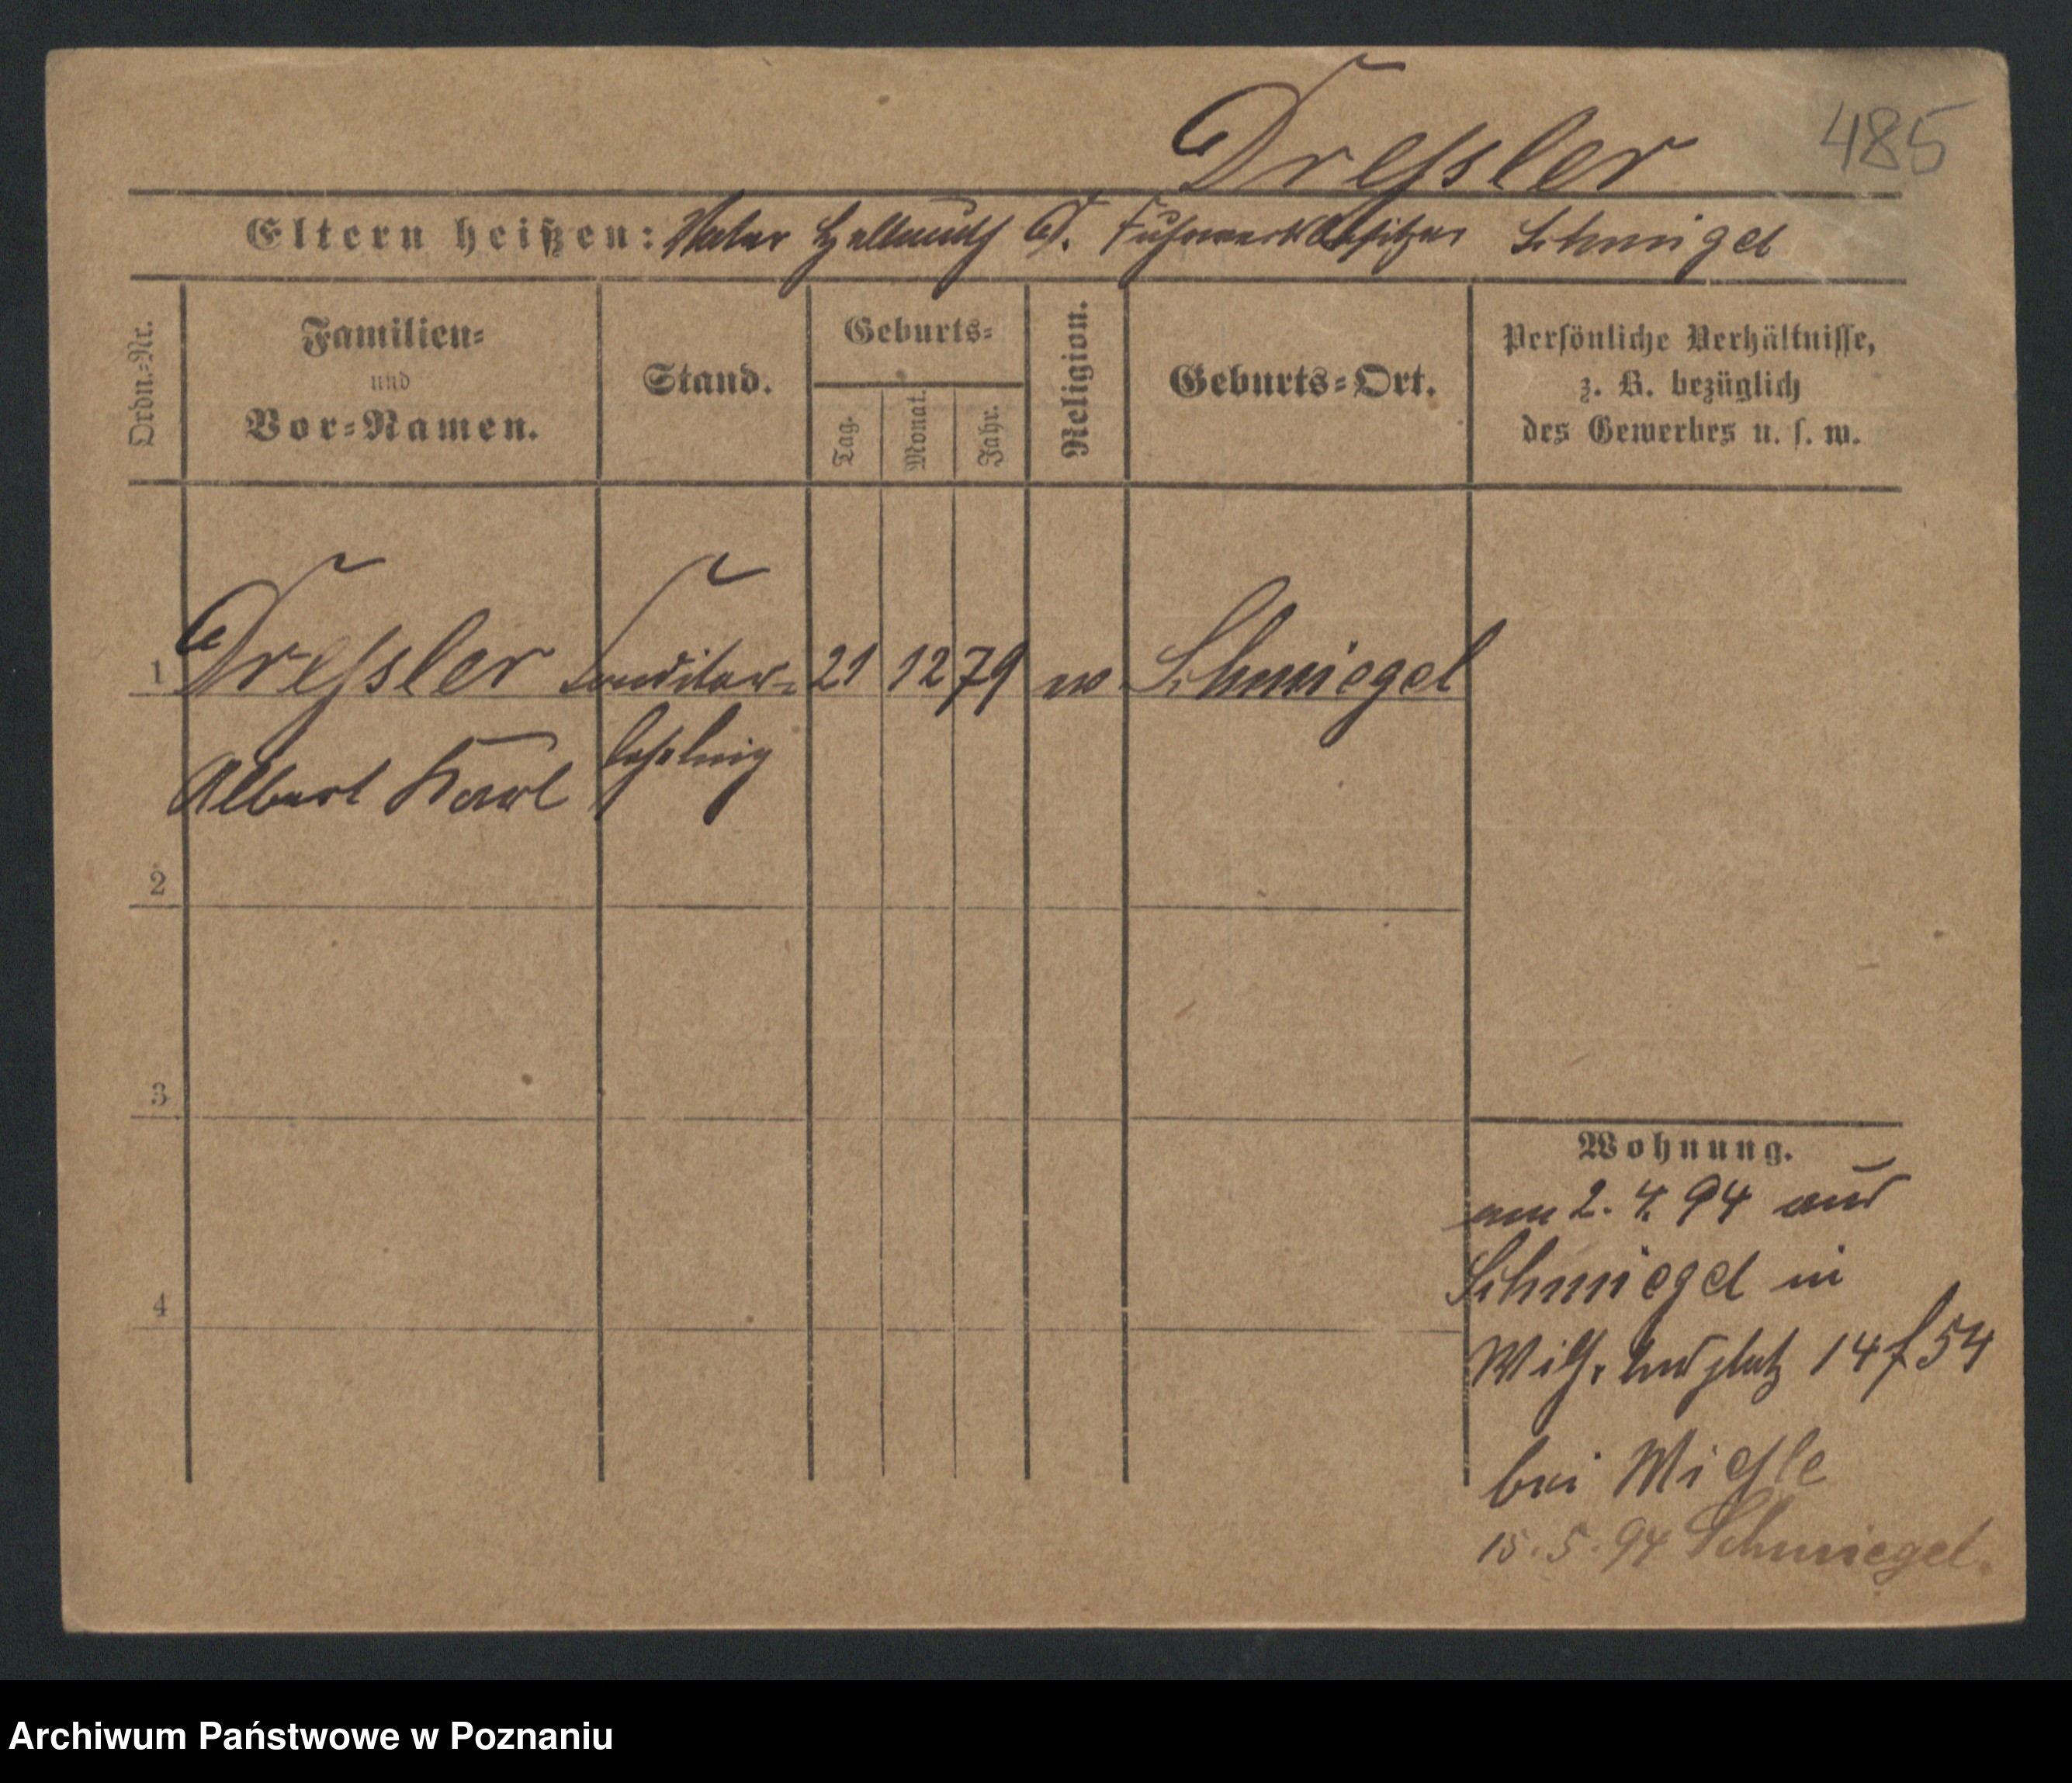 Dressler 485
Eltern heißen: Vater Hellmuth D. Fuhrwerksbesitzer Schmigel
Ordn.-Nr.
Familien-
und
Vor-Namen.
Stand.
Geburts-
Tag.
Monat.
Jahr.
Religion.
Geburts-Ort.
Persönliche Verhältnisse,
z. B. bezüglich
des Gewerbes u. s. w.
1 Dressler Conditor- 21 12 79 ev Schmiegel
Albert Karl lehrling
2
3
4
Wohnung.
am 2. 4. 94 aus
Schmiegel in
Wilh. platz 14 f 54
bei
15. 5. 94 Schmiegel.
Archiwum Państwowe w Poznaniu